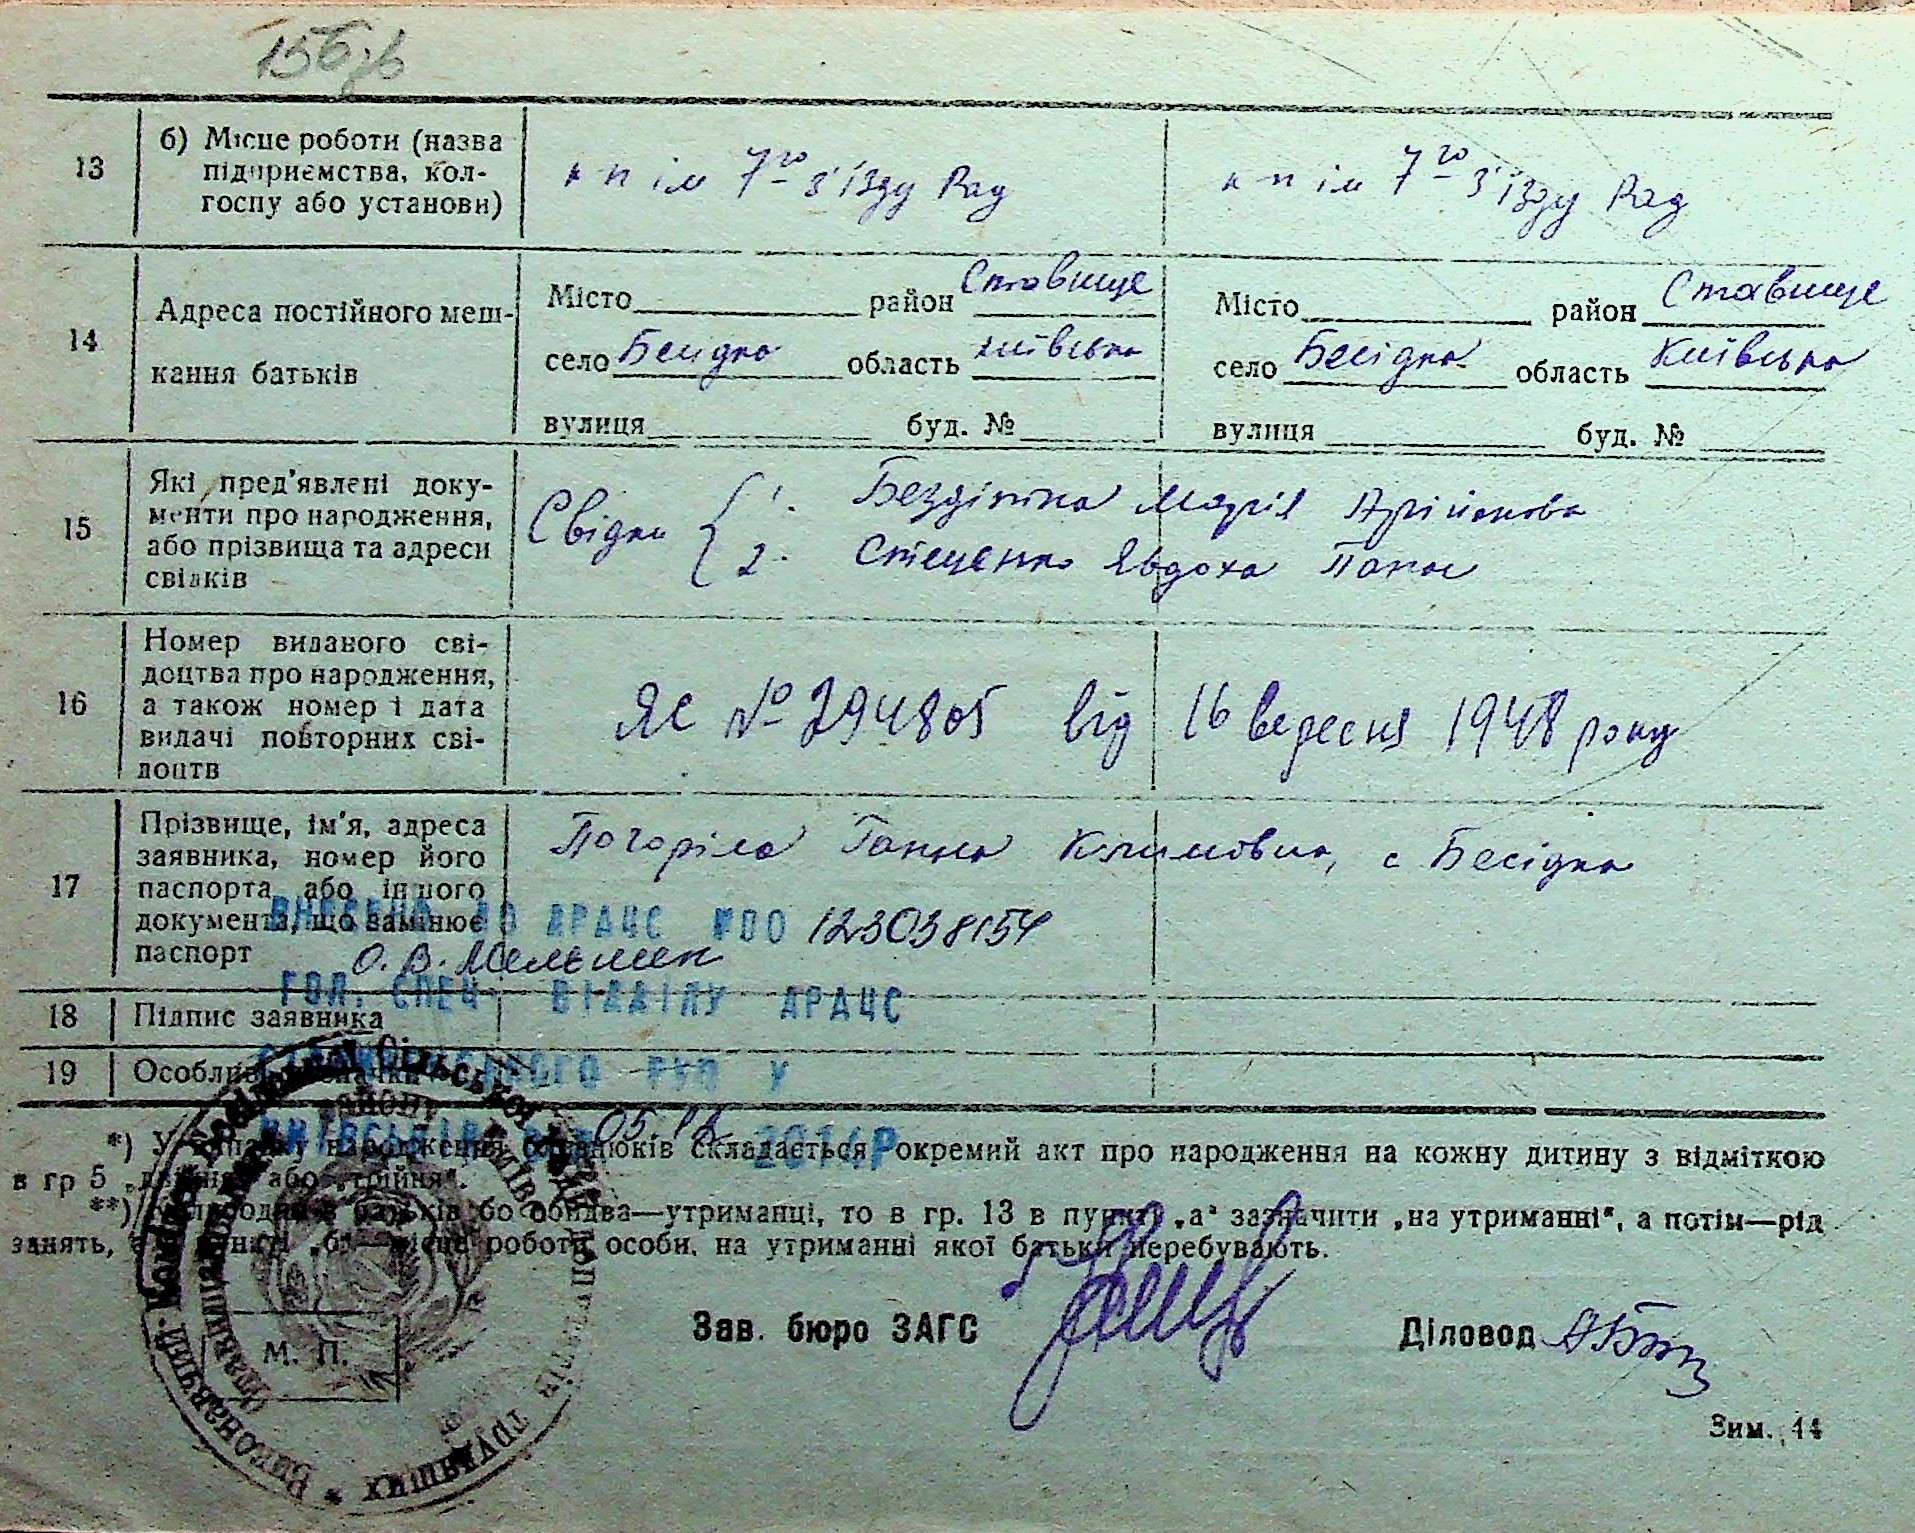 156 зв
13
б) Місце роботи (назва
підприємства, кол-
госпу або установи)
к-п ім 7го з'їзду Рад
к-п ім 7го з'їзду Рад
14
Адреса постійного меш-
кання батьків
Місто район Ставище
село Бесідка область київська
вулиця буд. №
Місто район Ставище
село Бесідка область Київська
вулиця буд. №
15
Які пред'явлені доку-
менти про народження,
або прізвища та адреси
свідків
Свідки
1. Бездітна Марія
2. Стеценко Явдоха Панас
16
Номер виданого сві-
доцтва про народження,
а також номер і дата
видачі повторних сві-
доцтв
ЯС № 294805 від 16 вересня 1948 року
17
Прізвище, ім'я, адреса
заявника, номер його
паспорта або іншого
документа, що замінює
паспорт
Погоріла Ганна Климовна, с Бесідка
ВНЕСЕНА ДО ДРАЦС №00 123038154
О. В. Мельник
ГОЛ. СПЕЦ. ВІДДІЛУ ДРАЦС
18
Підпис заявника
19
Особливі
РУЮ У
05 2014Р
*) У випадку народження близнюків складається окремий акт про народження на кожну дитину з відміткою
в гр 5 „двійня" або „трійня".
**) батьків бо обидва—утриманці, то в гр. 13 в пункті „а" зазначити „на утриманні", а потім—рід
занять, „б"—місце роботи особи, на утриманні якої батьки перебувають.
М. П.
Зав. бюро ЗАГС
Діловод
Зим. 14